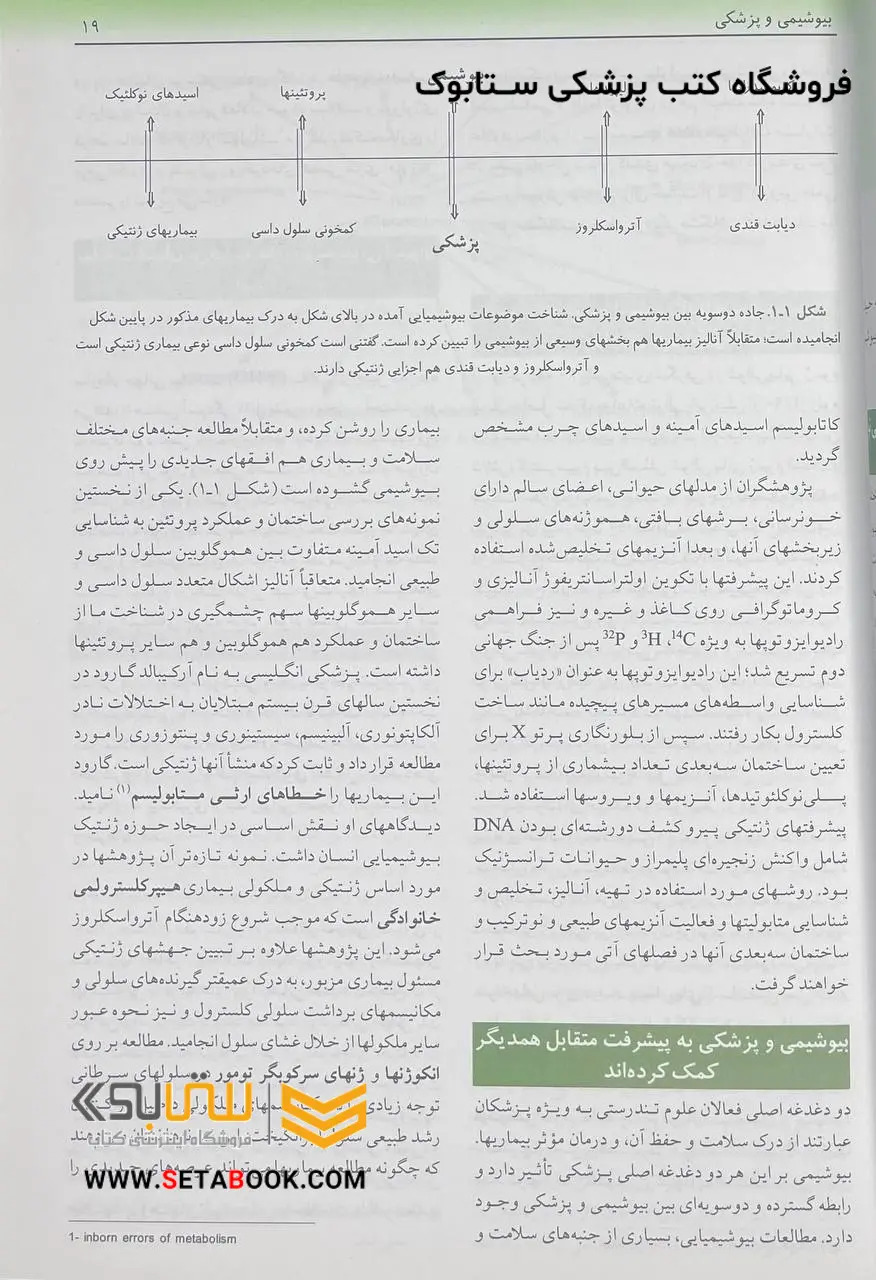 بیوشیمی و پزشکی
۱۹
فروشگاه کتب پزشکی ستابوک
پروتئینها
اسیدهای نوکلئیک
دیابت قندی
آترواسکلروز
پزشکی
کمخونی سلول داسی
بیماریهای ژنتیکی
شکل ۱-۱. جاده دوسویه بین بیوشیمی و پزشکی. شناخت موضوعات بیوشیمیایی آمده در بالای شکل به درک بیماریهای مذکور در پایین شکل
انجامیده است؛ متقابلاً آنالیز بیماریها هم بخشهای وسیعی از بیوشیمی را تبیین کرده است. گفتنی است کمخونی سلول داسی نوعی بیماری ژنتیکی است
و آترواسکلروز و دیابت قندی هم اجزایی ژنتیکی دارند.
کاتابولیسم اسیدهای آمینه و اسیدهای چرب مشخص
گردید.
پژوهشگران از مدلهای حیوانی، اعضای سالم دارای
خونرسانی، برشهای بافتی، هموژنه‌های سلولی و
زیربخشهای آنها، و بعدا آنزیمهای تخلیص‌شده استفاده
کردند. این پیشرفتها با تکوین اولتراسانتریفوژ آنالیزی و
کروماتوگرافی روی کاغذ و غیره و نیز فراهمی
رادیوایزوتوپها به ویژه ¹⁴C، ³H و ³²P پس از جنگ جهانی
دوم تسریع شد؛ این رادیوایزوتوپها به عنوان «ردیاب» برای
شناسایی واسطه‌های مسیرهای پیچیده مانند ساخت
کلسترول بکار رفتند. سپس از بلورنگاری پرتو X برای
تعیین ساختمان سه‌بعدی تعداد بیشماری از پروتئینها،
پلی‌نوکلئوتیدها، آنزیمها و ویروسها استفاده شد.
پیشرفتهای ژنتیکی پیرو کشف دورشته‌ای بودن DNA
شامل واکنش زنجیره‌ای پلیمراز و حیوانات ترانسژنیک
بود. روشهای مورد استفاده در تهیه، آنالیز، تخلیص و
شناسایی متابولیتها و فعالیت آنزیمهای طبیعی و نوترکیب و
ساختمان سه‌بعدی آنها در فصلهای آتی مورد بحث قرار
خواهند گرفت.
بیوشیمی و پزشکی به پیشرفت متقابل همدیگر
کمک کرده‌اند
دو دغدغه اصلی فعالان علوم تندرستی به ویژه پزشکان
عبارتند از درک سلامت و حفظ آن، و درمان مؤثر بیماریها.
بیوشیمی بر این هر دو دغدغه اصلی پزشکی تأثیر دارد و
رابطه گسترده و دوسویه‌ای بین بیوشیمی و پزشکی وجود
دارد. مطالعات بیوشیمیایی، بسیاری از جنبه‌های سلامت و
بیماری را روشن کرده، و متقابلاً مطالعه جنبه‌های مختلف
سلامت و بیماری هم افقهای جدیدی را پیش روی
بیوشیمی گشوده است (شکل ۱-۱). یکی از نخستین
نمونه‌های بررسی ساختمان و عملکرد پروتئین به شناسایی
تک اسید آمینه متفاوت بین هموگلوبین سلول داسی و
طبیعی انجامید. متعاقباً آنالیز اشکال متعدد سلول داسی و
سایر هموگلوبینها سهم چشمگیری در شناخت ما از
ساختمان و عملکرد هم هموگلوبین و هم سایر پروتئینها
داشته است. پزشکی انگلیسی به نام آرکیبالد گارود در
نخستین سالهای قرن بیستم مبتلایان به اختلالات نادر
آلکاپتونوری، آلبینیسم، سیستینوری و پنتوزوری را مورد
مطالعه قرار داد و ثابت کرد که منشأ آنها ژنتیکی است. گارود
این بیماریها را خطاهای ارثی متابولیسم(۱) نامید.
دیدگاههای او نقش اساسی در ایجاد حوزه ژنتیک
بیوشیمیایی انسان داشت. نمونه تازه‌تر آن پژوهشها در
مورد اساس ژنتیکی و ملکولی بیماری هیپرکلسترولمی
خانوادگی است که موجب شروع زودهنگام آترواسکلروز
می‌شود. این پژوهشها علاوه بر تبیین جهشهای ژنتیکی
مسئول بیماری مزبور، به درک عمیقتر گیرنده‌های سلولی و
مکانیسمهای برداشت سلولی کلسترول و نیز نحوه عبور
سایر ملکولها از خلال غشای سلول انجامید. مطالعه بر روی
انکوژنها و ژنهای سرکوبگر تومور در سلولهای سرطانی
توجه زیادی
رشد طبیعی
که چگونه مطالعه بیماریها می‌تواند عرصه‌های جدیدی را
ستابوک
فروشگاه اینترنتی کتاب
WWW.SETABOOK.COM
1- inborn errors of metabolism